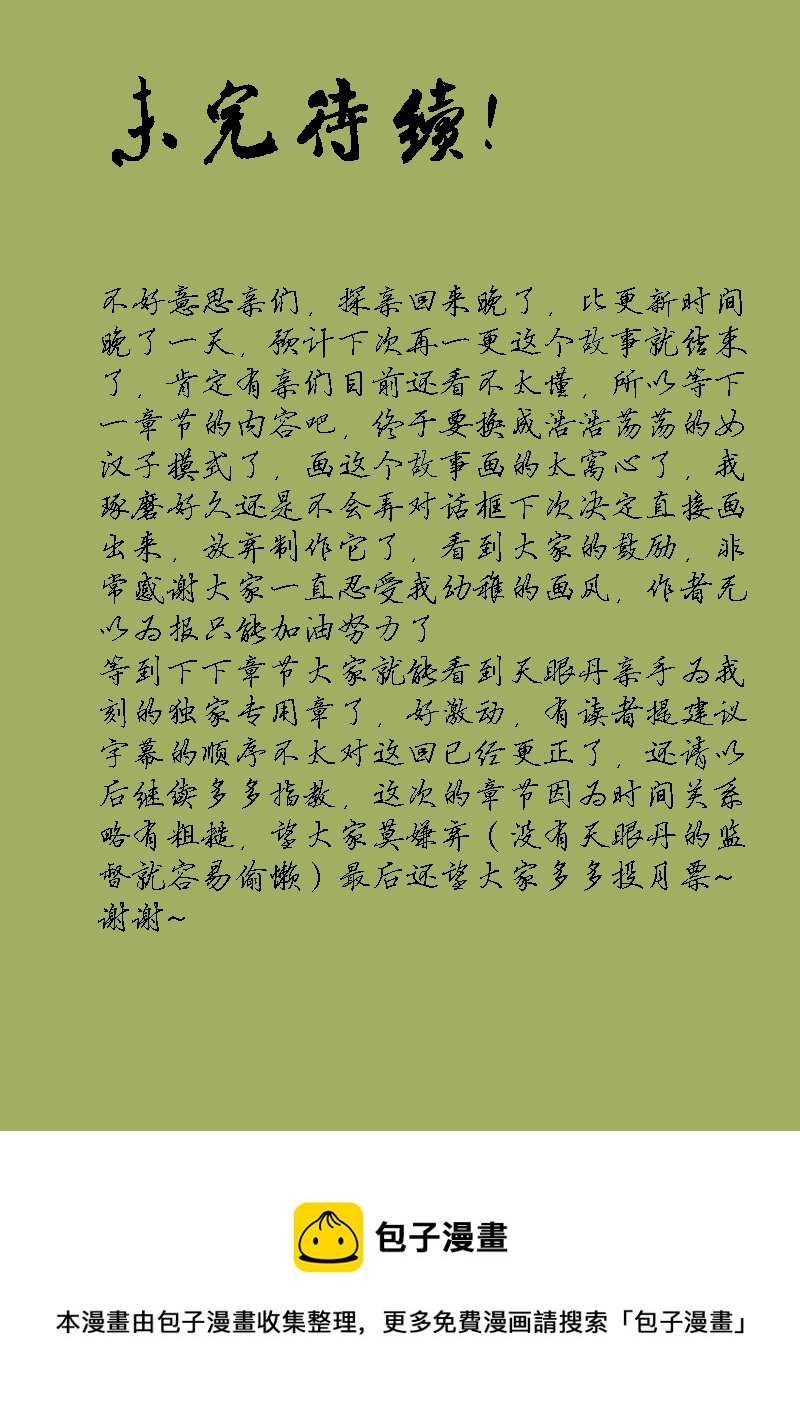 未完待续!
不好意思亲们，探亲回来晚了，比更新时间
晚了一天，预计下次再一更这个故事就结束
了，肯定有亲们目前还看不太懂，所以等下
一章节的内容吧，终于要换成浩浩荡荡的女
汉子模式了，画这个故事画的太窝心了，我
琢磨好久还是不会弄对话框下次决定直接画
出来，放弃制作它了，看到大家的鼓励，非
常感谢大家一直忍受我幼稚的画风，作者无
以为报只能加油努力了
等到下下章节大家就能看到天眼丹亲手为我
刻的独家专用章了，好激动，有读者提建议
字幕的顺序不太对这回已经更正了，还请以
后继续多多指教，这次的章节因为时间关系
略有粗糙，望大家莫嫌弃（没有天眼丹的监
督就容易偷懒）最后还望大家多多投月票~
谢谢~
包子漫畫
本漫畫由包子漫畫收集整理，更多免費漫画請搜索「包子漫畫」